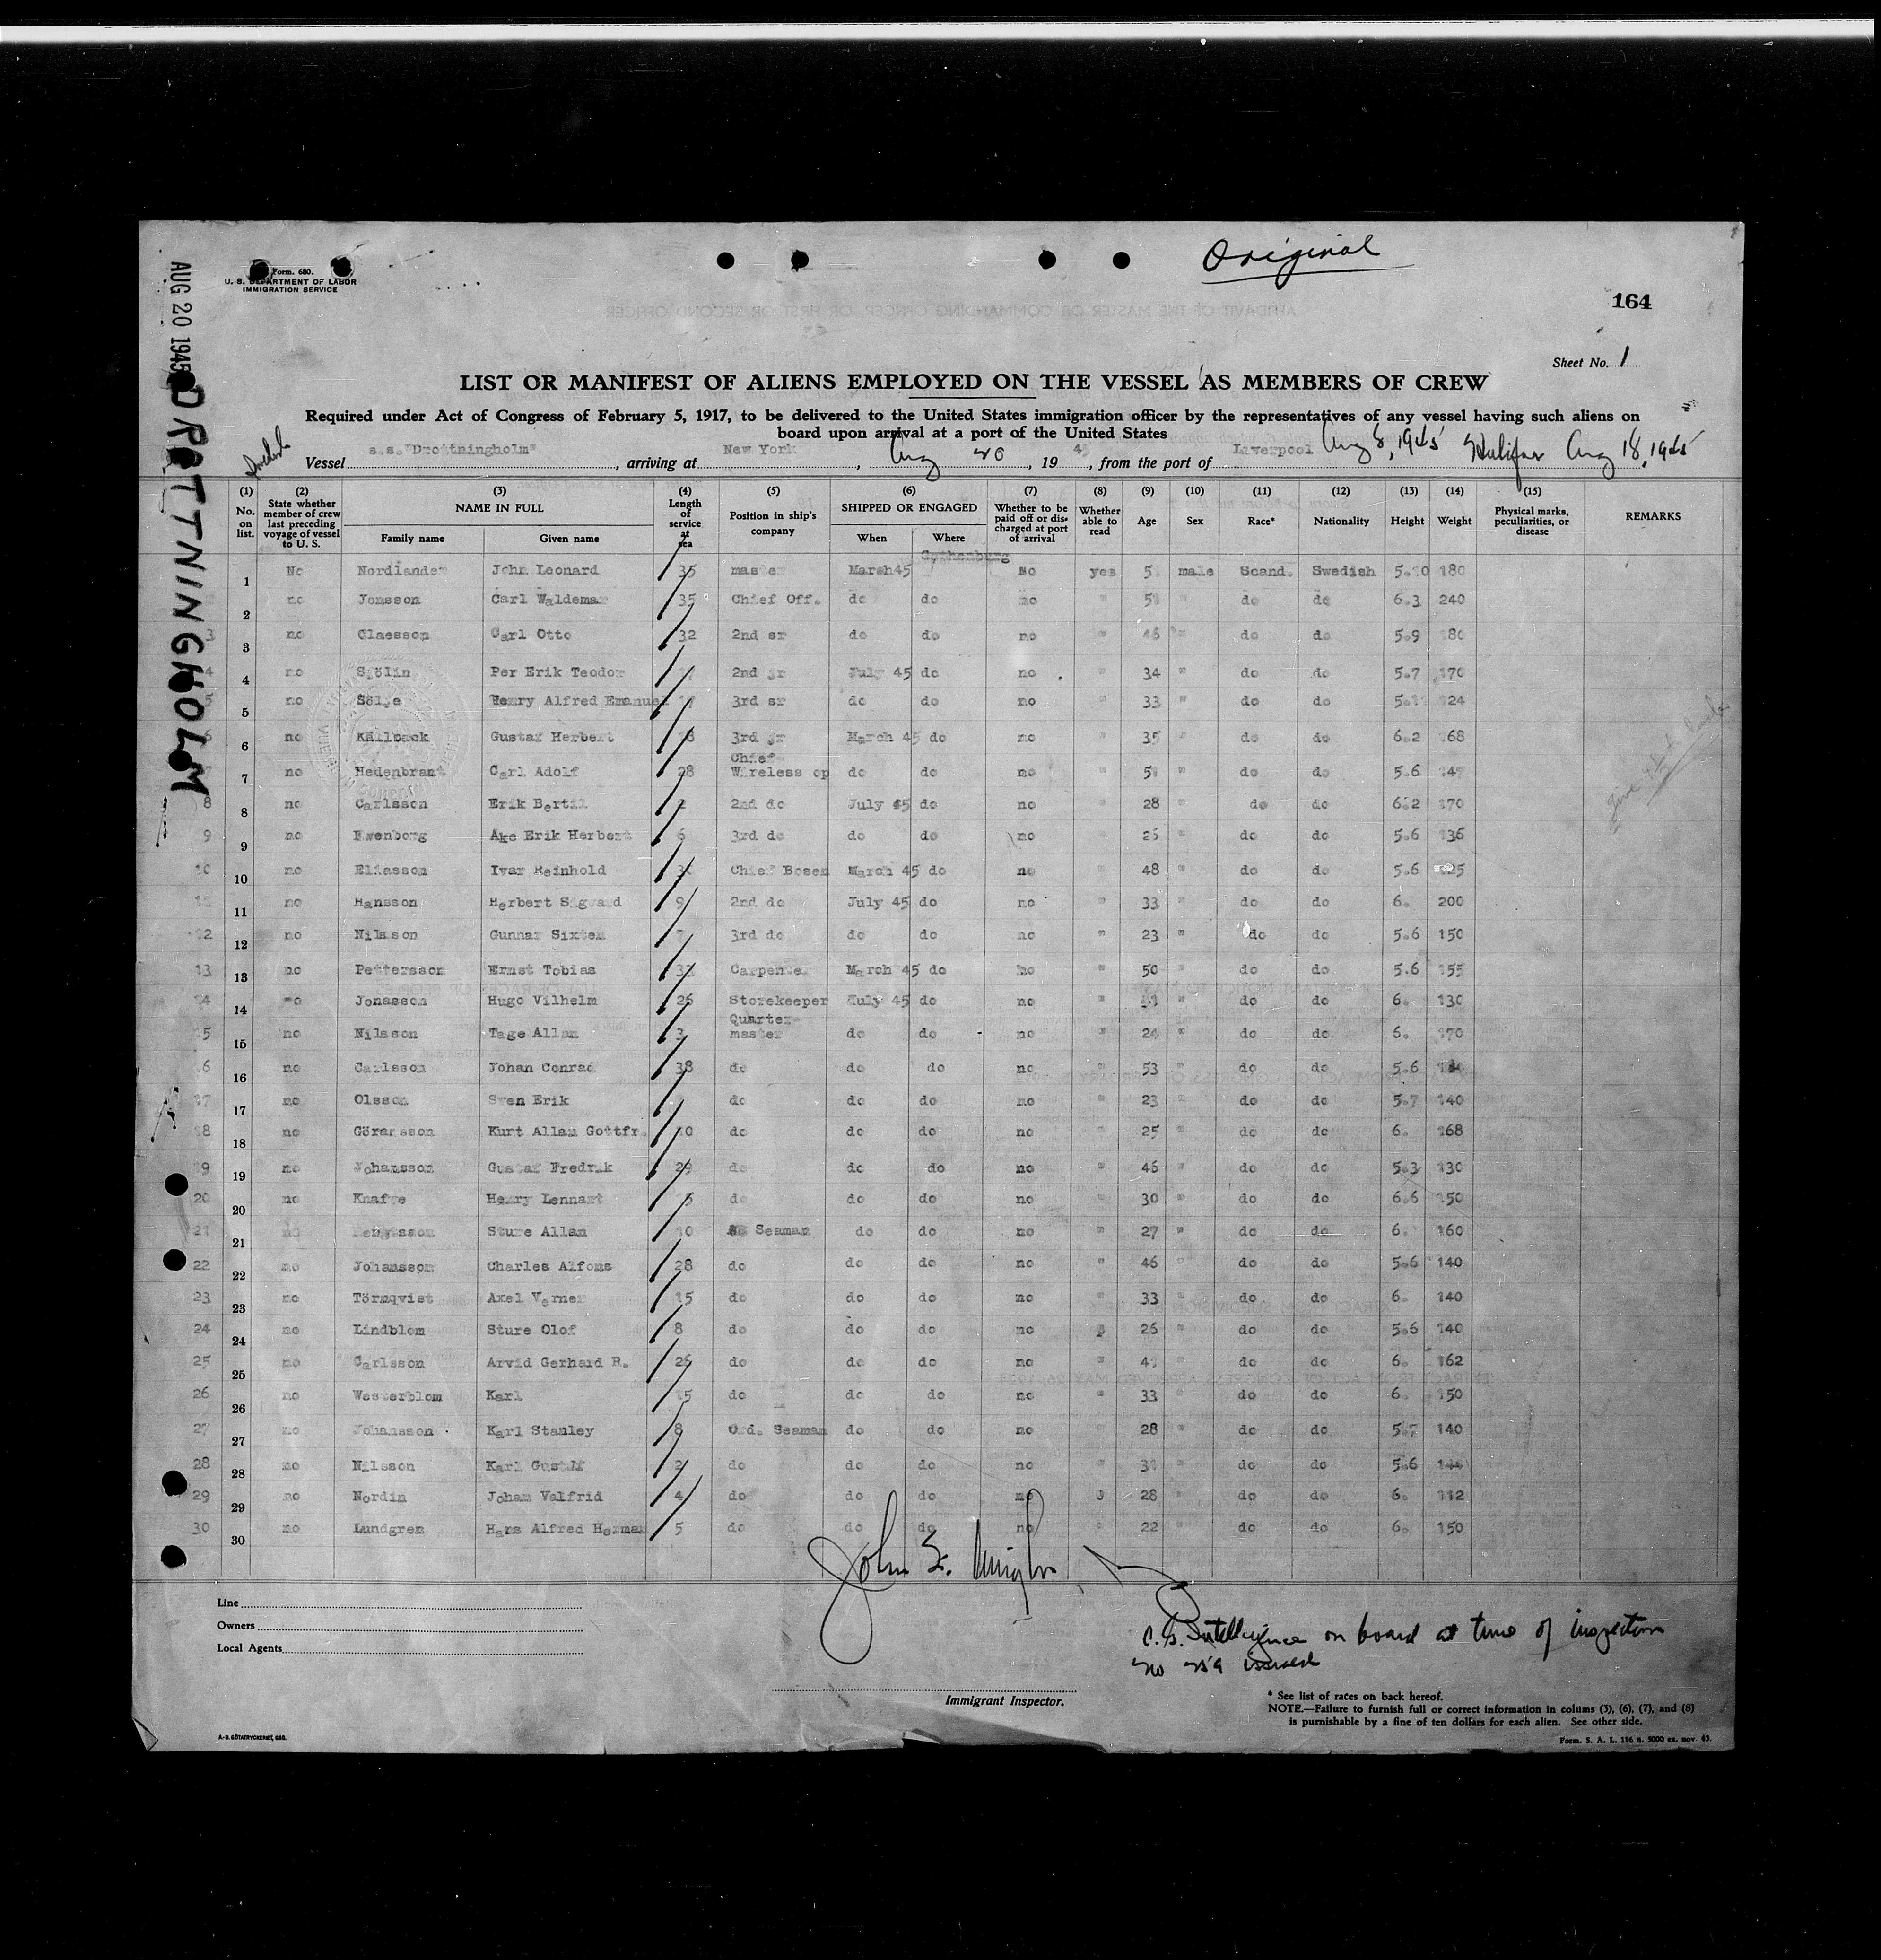 Original
Form. 680.
U. S. DEPARTMENT OF LABOR
IMMIGRATION SERVICE
AUG 20 1945
DROTTNINGHOLM
164
Sheet No. 1
LIST OR MANIFEST OF ALIENS EMPLOYED ON THE VESSEL AS MEMBERS OF CREW
Required under Act of Congress of February 5, 1917, to be delivered to the United States immigration officer by the representatives of any vessel having such aliens on
board upon arrival at a port of the United States
Vessel s.s."Drottningholm", arriving at New York, Aug 20, 1945, from the port of Liverpool Aug 8, 1945 Halifax Aug 18, 1945
(1) No. on list. (2) State whether member of crew last preceding voyage of vessel to U. S. (3) NAME IN FULL Family name Given name (4) Length of service at sea (5) Position in ship's company (6) SHIPPED OR ENGAGED When Where (7) Whether to be paid off or discharged at port of arrival (8) Whether able to read (9) Age (10) Sex (11) Race* (12) Nationality (13) Height (14) Weight (15) Physical marks, peculiarities, or disease REMARKS
Gothenburg
1 No Nordlander John Leonard 35 master March45 No yes male Scand. Swedish 5.10 180
2 no Jonsson Carl Waldemar 35 Chief Off. do do no " do do 6.3 240
3 no Claesson Carl Otto 32 2nd sr do do no " 46 " do do 5.9 180
4 no Sjölin Per Erik Teodor 2nd jr July 45 do no " 34 " do do 5.7 170
5 no Sölje Henry Alfred Emanuel 3rd sr do do no " 33 " do do 124
6 no Källback Gustaf Herbert 18 3rd jr March 45 do no " 35 " do do 6.2 168
7 no Hedenbrant Carl Adolf 28 Chief Wireless op do do no " " do do 5.6 147
8 no Carlsson Erik Bertil 2 2nd do July 45 do no " 28 " do do 6.2 170
9 no Åke Erik Herbert 6 3rd do do do no " " do do 5.6 136
10 no Eliasson Ivar Reinhold Chief Bosen March 45 do no " 48 " do do 5.6
11 no Hansson Herbert Sigvard 9 2nd do July 45 do no " 33 " do do 6. 200
12 no Nilsson Gunnar Sixten 3rd do do do no " 23 " do do 5.6 150
13 no Pettersson Ernst Tobias Carpenter March 45 do no " 50 " do do 5.6 155
14 no Jonasson Hugo Vilhelm 26 Storekeeper July 45 do no " do do 6. 130
15 no Nilsson Tage Allan 3 Quartermaster do do no " 24 " do do 6. 170
16 no Carlsson Johan Conrad 38 do do do no " 53 " do do 5.6
17 no Olsson Sven Erik do do do no " 23 " do do 5.7 140
18 no Göransson Kurt Allan Gottfr. 10 do do do no " 25 " do do 6. 168
19 no Johansson Gustaf Fredrik 29 do do do no " 46 " do do 5.3 130
20 no Knafve Henry Lennart 5 do do do no " 30 " do do 6.6 150
21 no Bengtsson Sture Allan 10 Seaman do do no " 27 " do do 6. 160
22 no Johansson Charles Alfons 28 do do do no " 46 " do do 5.6 140
23 no Törnqvist Axel Verner 15 do do do no " 33 " do do 6. 140
24 no Lindblom Sture Olof 8 do do do no " 26 " do do 5.6 140
25 no Carlsson Arvid Gerhard R. 26 do do do no " " do do 6. 162
26 no Westerblom Karl 15 do do do no " 33 do do 6. 150
27 no Johansson Karl Stanley 8 Ord. Seaman do do no " 28 " do do 5.7 140
28 no Nilsson Karl Gustaf 2 do do do no " 31 " do do 5.6
29 no Nordin Johan Valfrid 4 do do do no 28 " do do 6. 112
30 no Lundgren Hans Alfred Herman 5 do do do no " 22 " do do 6. 150
Line
Owners
Local Agents
Immigrant Inspector.
C.G. Intelligence on board at time of inspection
no issued
* See list of races on back hereof.
NOTE.—Failure to furnish full or correct information in colums (3), (6), (7), and (8)
is punishable by a fine of ten dollars for each alien. See other side.
A.-B. GÖTATRYCKERIET, 686.
Form. S. A. L. 116 n. 5000 ex. nov. 43.